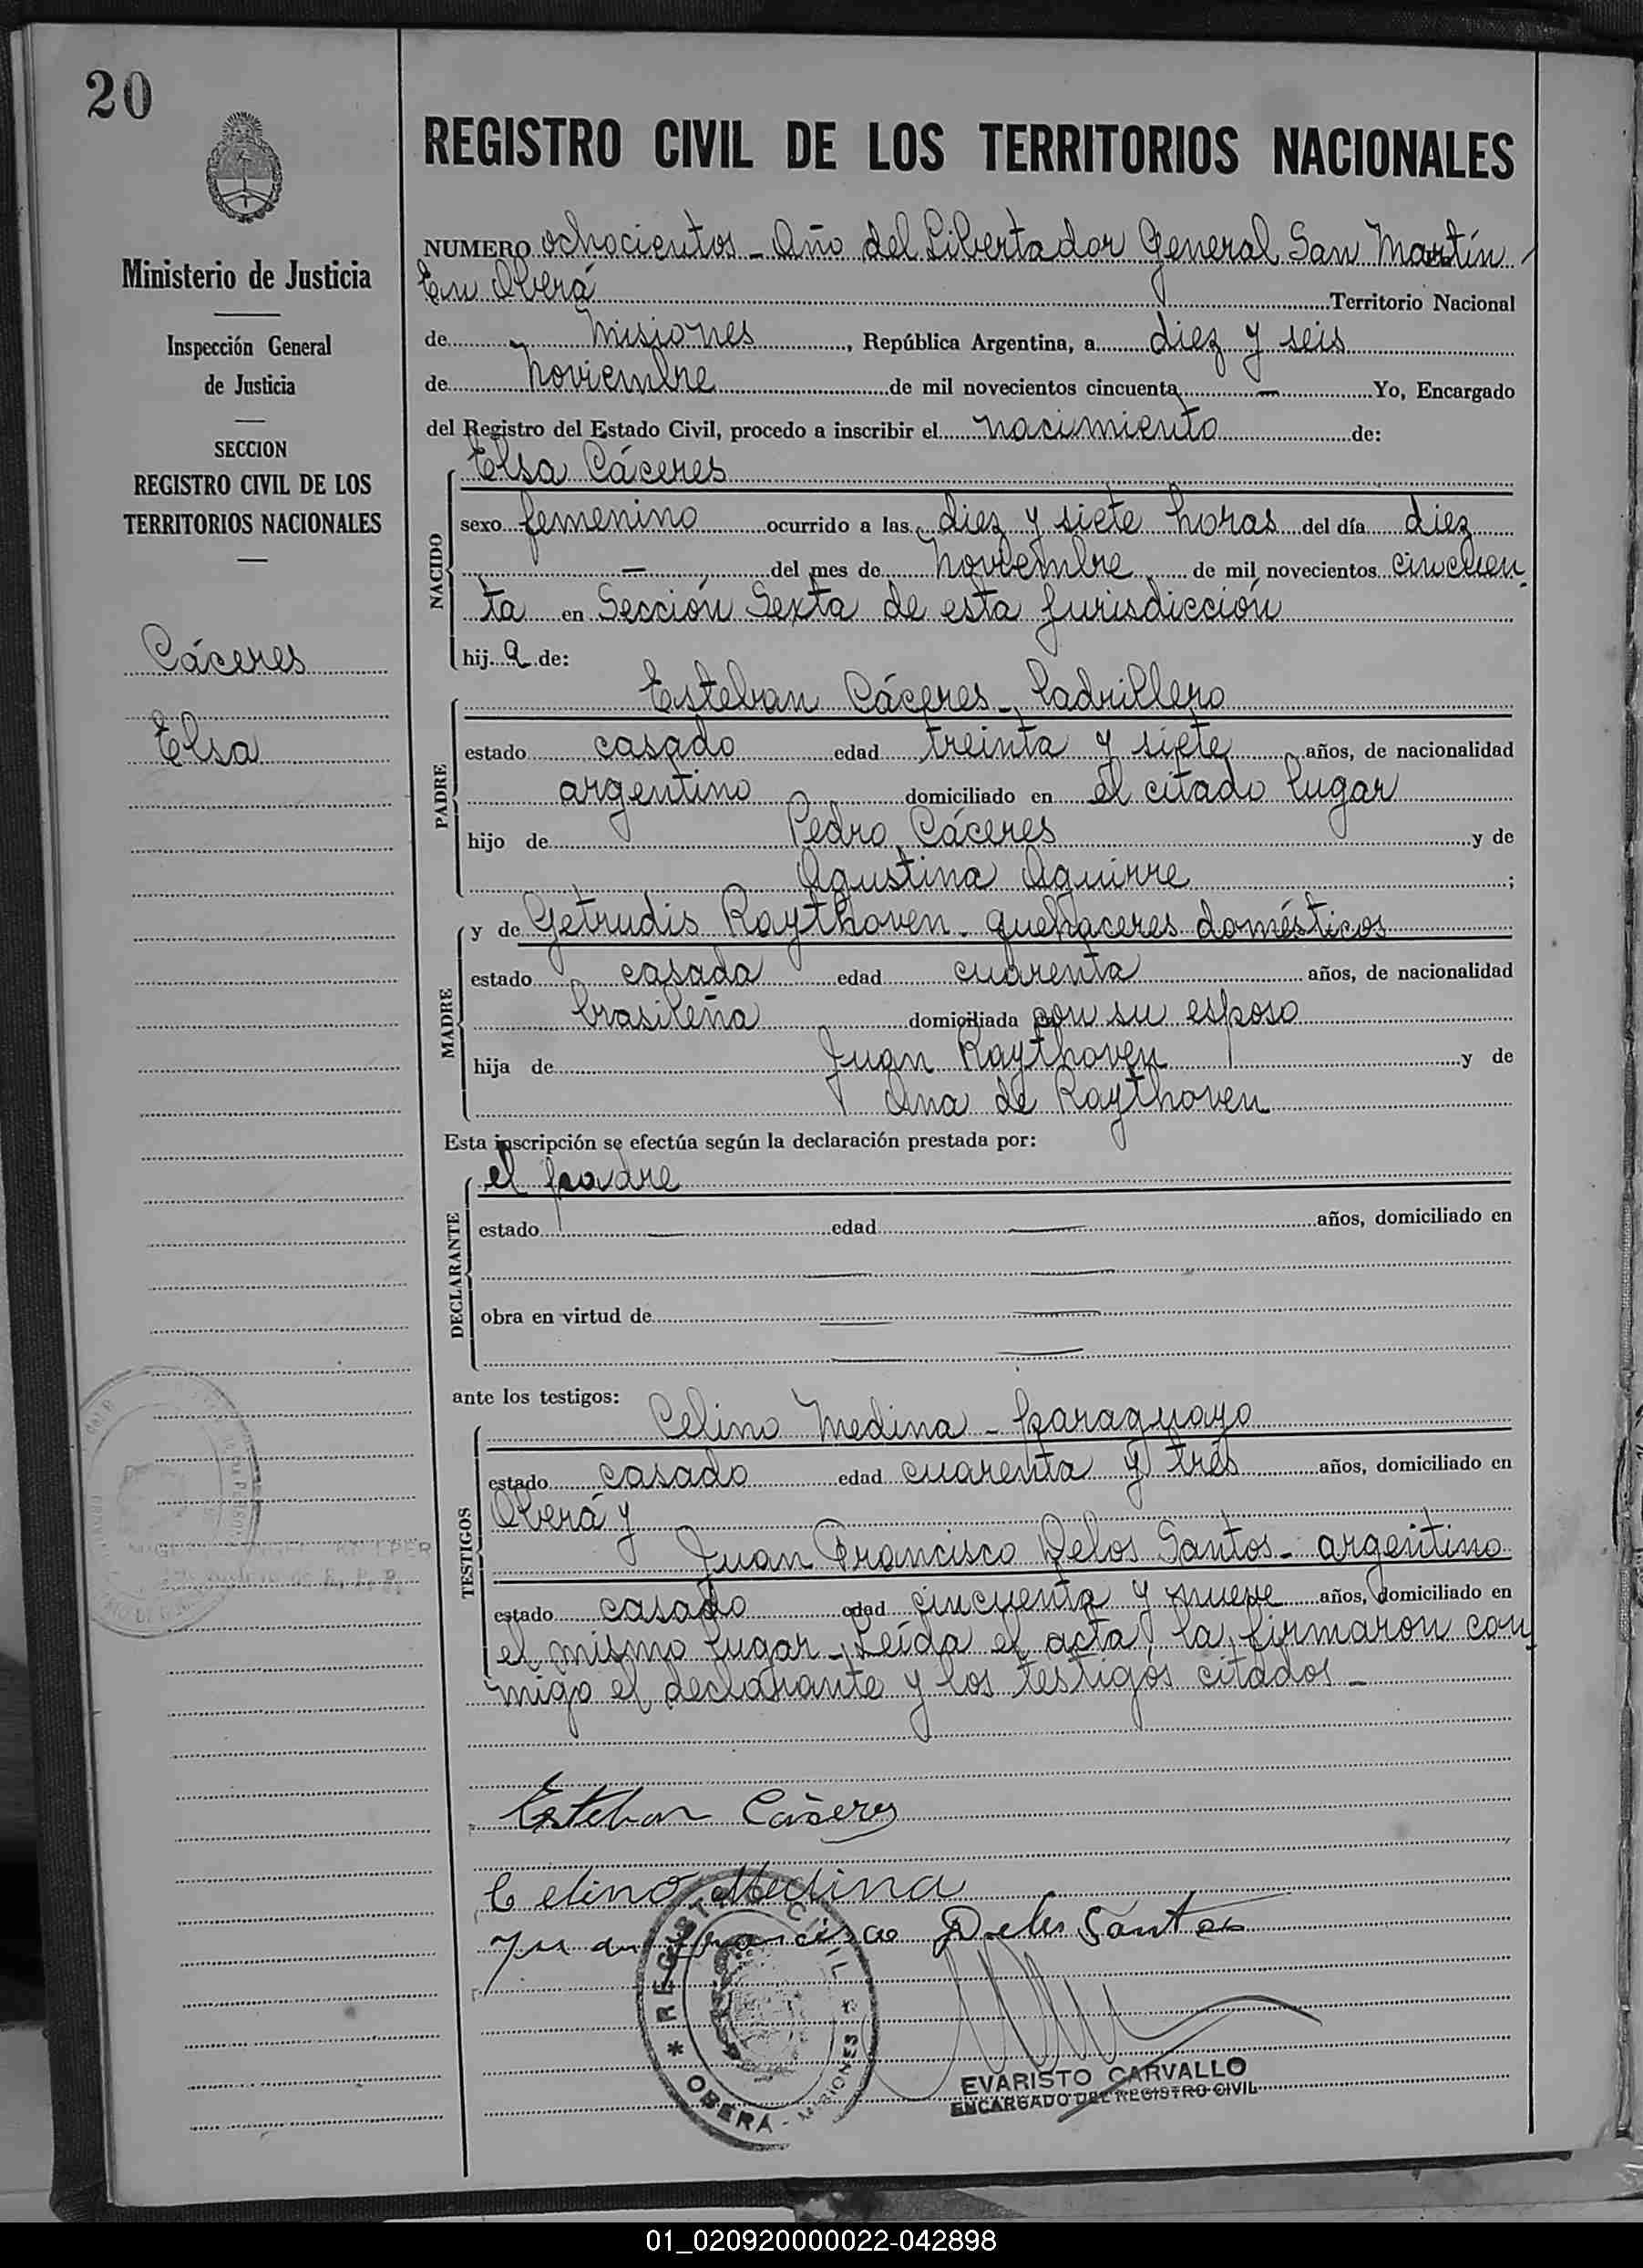 20
REGISTRO CIVIL DE LOS TERRITORIOS NACIONALES
Ministerio de Justicia
Inspección General
de Justicia
SECCION
REGISTRO CIVIL DE LOS
TERRITORIOS NACIONALES
Cáceres
Elsa
NUMERO ochocientos - Año del Libertador General San Martín
En Oberá Territorio Nacional
de Misiones, República Argentina, a diez y seis
de Noviembre de mil novecientos cincuenta — Yo, Encargado
del Registro del Estado Civil, procedo a inscribir el nacimiento de:
NACIDO
Elsa Cáceres
sexo femenino ocurrido a las diez y siete horas del día diez
— del mes de Noviembre de mil novecientos cincuen
ta en Sección Sexta de esta Jurisdicción
hij a de:
PADRE
Esteban Cáceres - ladrillero
estado casado edad treinta y siete años, de nacionalidad
argentino domiciliado en el citado lugar
hijo de Pedro Cáceres y de
Agustina Aguirre ;
MADRE
y de Getrudis Raythoven - quehaceres domésticos
estado casada edad cuarenta años, de nacionalidad
brasileña domiciliada con su esposo
hija de Juan Raythoven y de
Ana de Raythoven
Esta inscripción se efectúa según la declaración prestada por:
DECLARANTE
el padre
estado — edad — años, domiciliado en
— —
obra en virtud de — —
— —
ante los testigos:
TESTIGOS
Celino Medina - paraguayo
estado casado edad cuarenta y tres años, domiciliado en
Oberá y
Juan Francisco Delos Santos - argentino
estado casado edad cincuenta y nueve años, domiciliado en
el mismo lugar - Leída el acta, la firmaron con
migo el declarante y los testigos citados -
Esteban Cáceres
Celino Medina
Juan Francisco Delos Santos
REGISTRO CIVIL
* OBERA - MISIONES *
EVARISTO CARVALLO
ENCARGADO DEL REGISTRO CIVIL
01_020920000022-042898